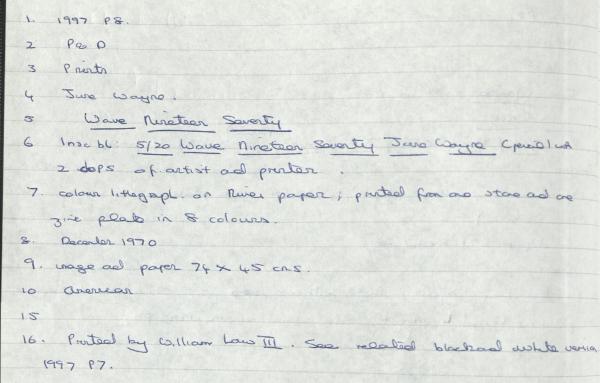 1. 1997 P8.
2 P&D
3 Prints
4 June Wayne.
5 Wave Nineteen Seventy
6 Insc bl: 5/20 Wave Nineteen Seventy June Wayne (pencil) with
2 chops of artist ad printer.
7. colour lithograph. on Rives paper; printed from one stone ad one
zinc plate in 8 colours.
8. December 1970
9. image ad paper 74 x 45 cms.
10 American
15
16. Printed by William Law III. See related black ad white version
1997 P7.